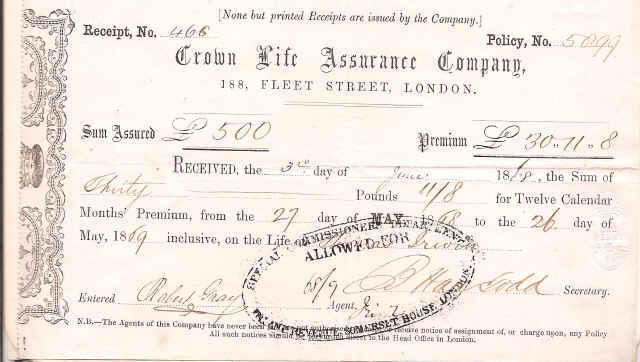 [None but printed Receipts are issued by the Company.]
Receipt, No. 466 Policy, No. 5099
Crown Life Assurance Company,
188, FLEET STREET, LONDON.
Sum Assured £500 Premium £30..11..8
RECEIVED, the 3rd day of June 1868, the Sum of
Thirty Pounds 11/8 for Twelve Calendar
Months' Premium, from the 27 day of MAY 1868 to the 26 day of
May, 1869 inclusive, on the Life of Irwin
ALLOWED FOR
68/9
Secretary.
Entered Robert Gray Agent,
INLAND REVENUE SOMERSET HOUSE LONDON
N.B.—The Agents of this Company have never been authorised to receive notice of assignment of, or charge upon, any Policy
All such notices should be direct to the Head Office in London.